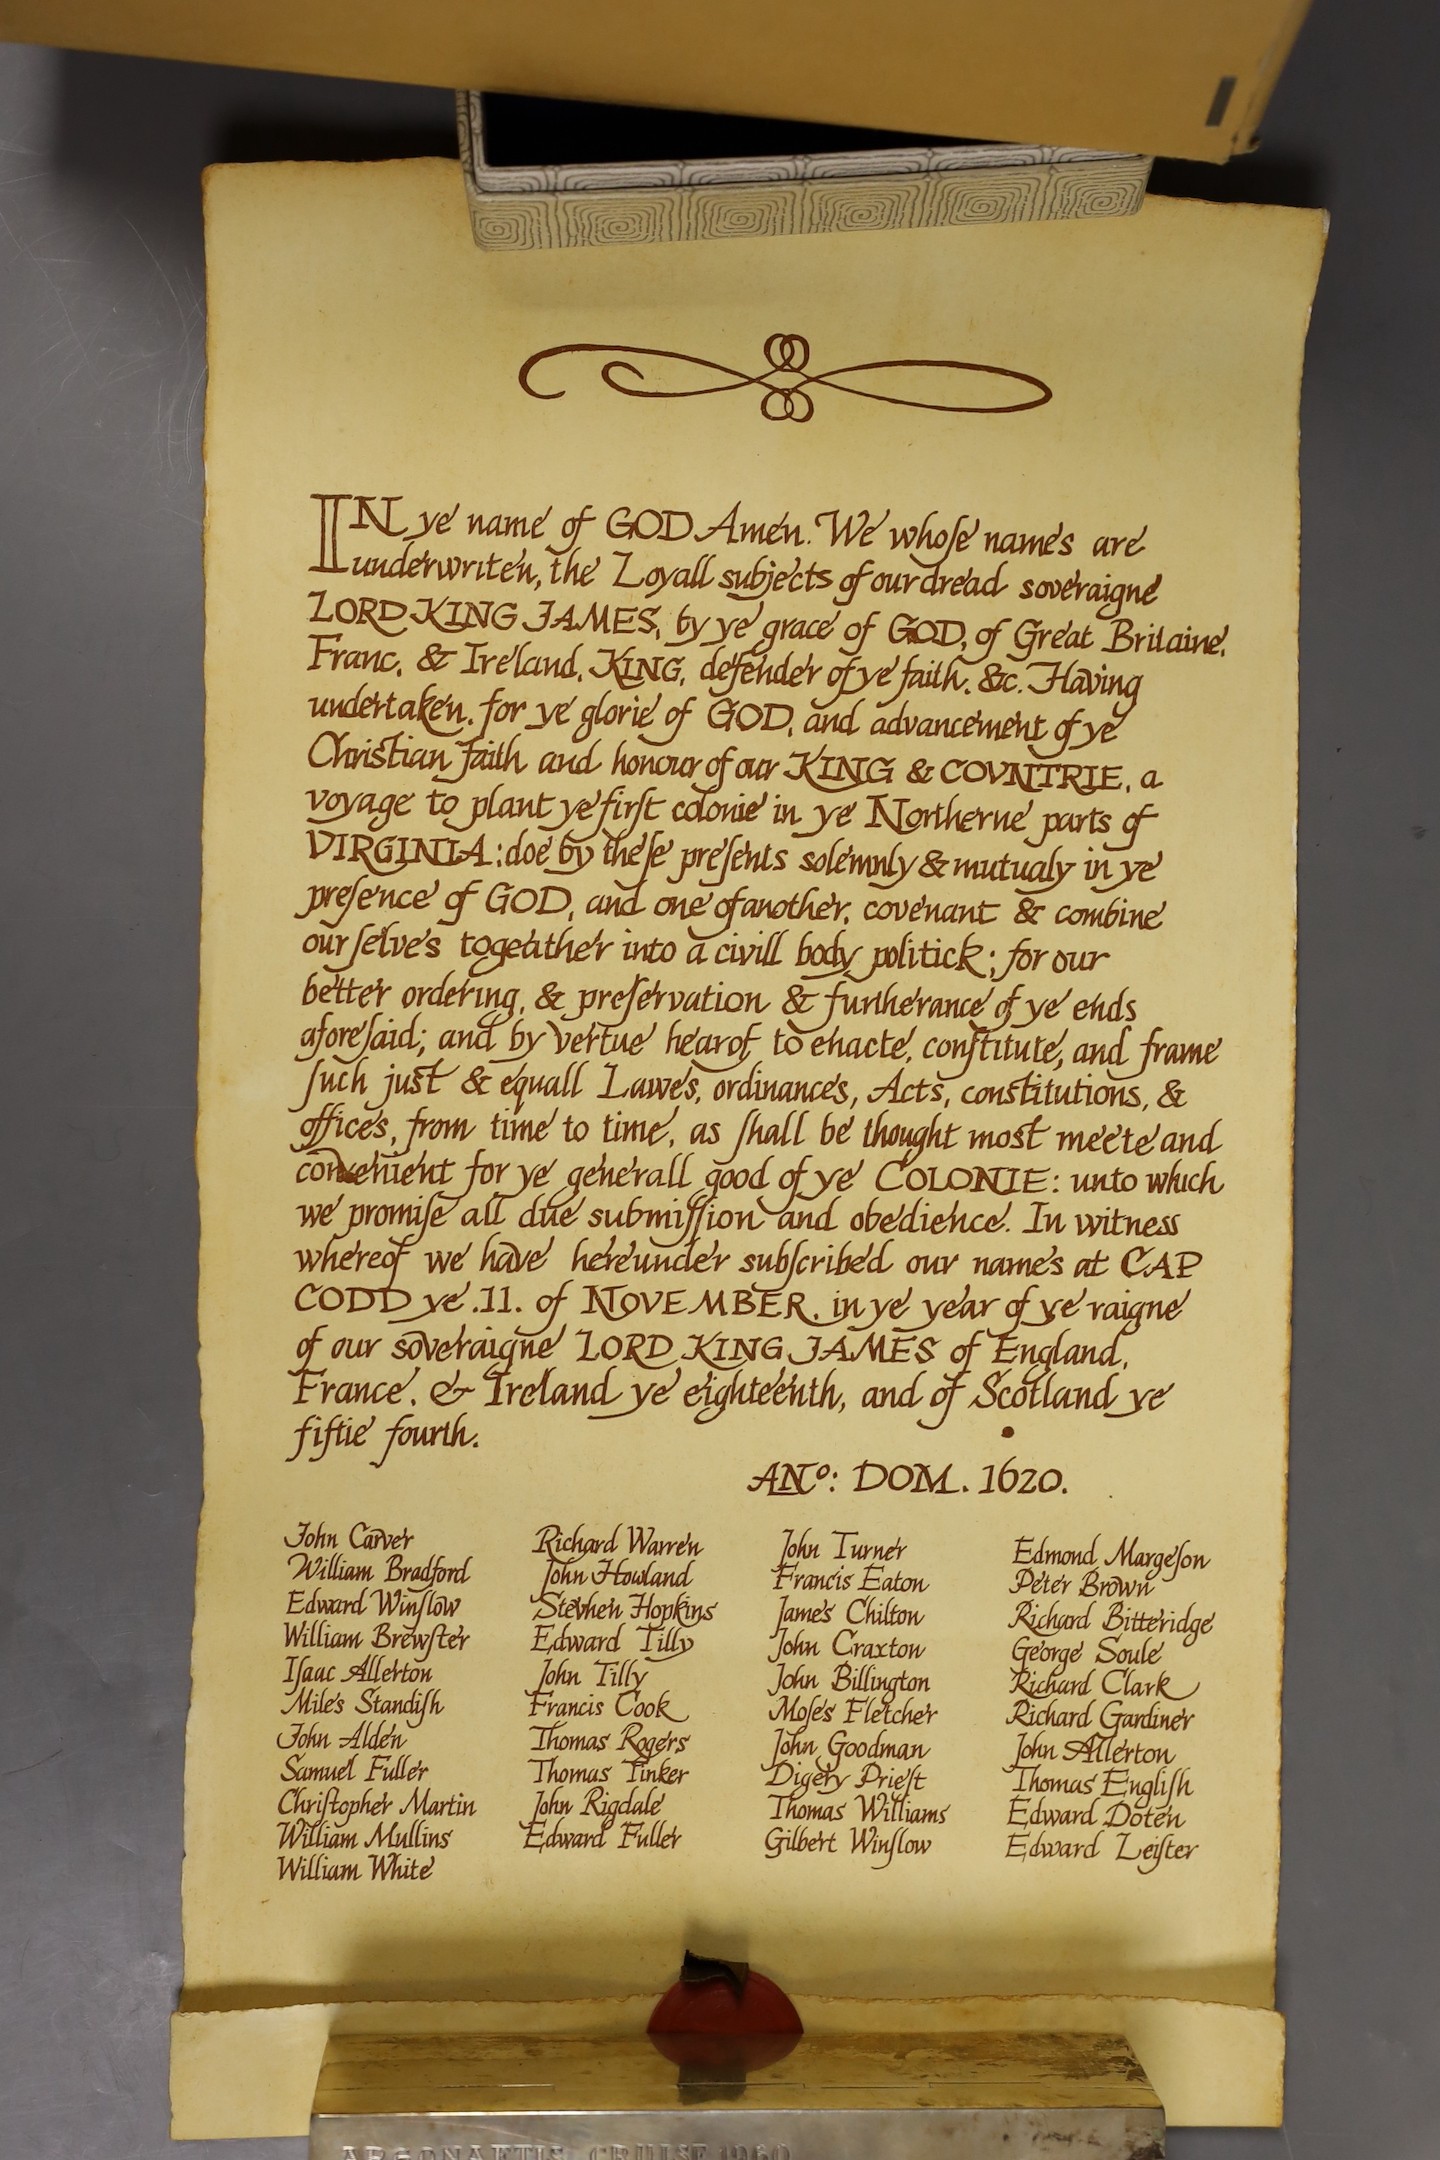 IN ye name of GOD Amen. We whoſe names are
underwriten, the Loyall subjects of our dread soveraigne
LORD KING JAMES, by ye grace of GOD, of Great Britaine,
Franc, & Ireland, KING, defender of ye faith, &c. Having
undertaken, for ye glorie of GOD, and advancement of ye
Christian faith and honour of our KING & COVNTRIE, a
voyage to plant ye firſt colonie in ye Northerne parts of
VIRGINIA: doe by theſe preſents solemnly & mutualy in ye
preſence of GOD, and one of another, covenant & combine
our ſelves togeather into a civill body politick; for our
better ordering, & preſervation & furtherance of ye ends
aforeſaid; and by vertue hearof to enacte, conſtitute, and frame
ſuch just & equall Lawes, ordinances, Acts, constitutions, &
offices, from time to time, as ſhall be thought most meete and
convenient for ye generall good of ye COLONIE: unto which
we promiſe all due submiſſion and obedience. In witness
whereof we have hereunder subſcribed our names at CAP
CODD ye .11. of NOVEMBER, in ye year of ye raigne
of our soveraigne LORD KING JAMES of England,
France, & Ireland ye eighteenth, and of Scotland ye
fiftie fourth.
ANº: DOM. 1620.
John Carver
William Bradford
Edward Winſlow
William Brewſter
Iſaac Allerton
Miles Standiſh
John Alden
Samuel Fuller
Chriſtopher Martin
William Mullins
William White
Richard Warren
John Howland
Stevhen Hopkins
Edward Tilly
John Tilly
Francis Cook
Thomas Rogers
Thomas Tinker
John Rigdale
Edward Fuller
John Turner
Francis Eaton
James Chilton
John Craxton
John Billington
Moſes Fletcher
John Goodman
Digery Prieſt
Thomas Williams
Gilbert Winſlow
Edmond Margeſon
Peter Brown
Richard Bitteridge
George Soule
Richard Clark
Richard Gardiner
John Allerton
Thomas Engliſh
Edward Doten
Edward Leiſter
ARGONAFTIS CRUISE 1960